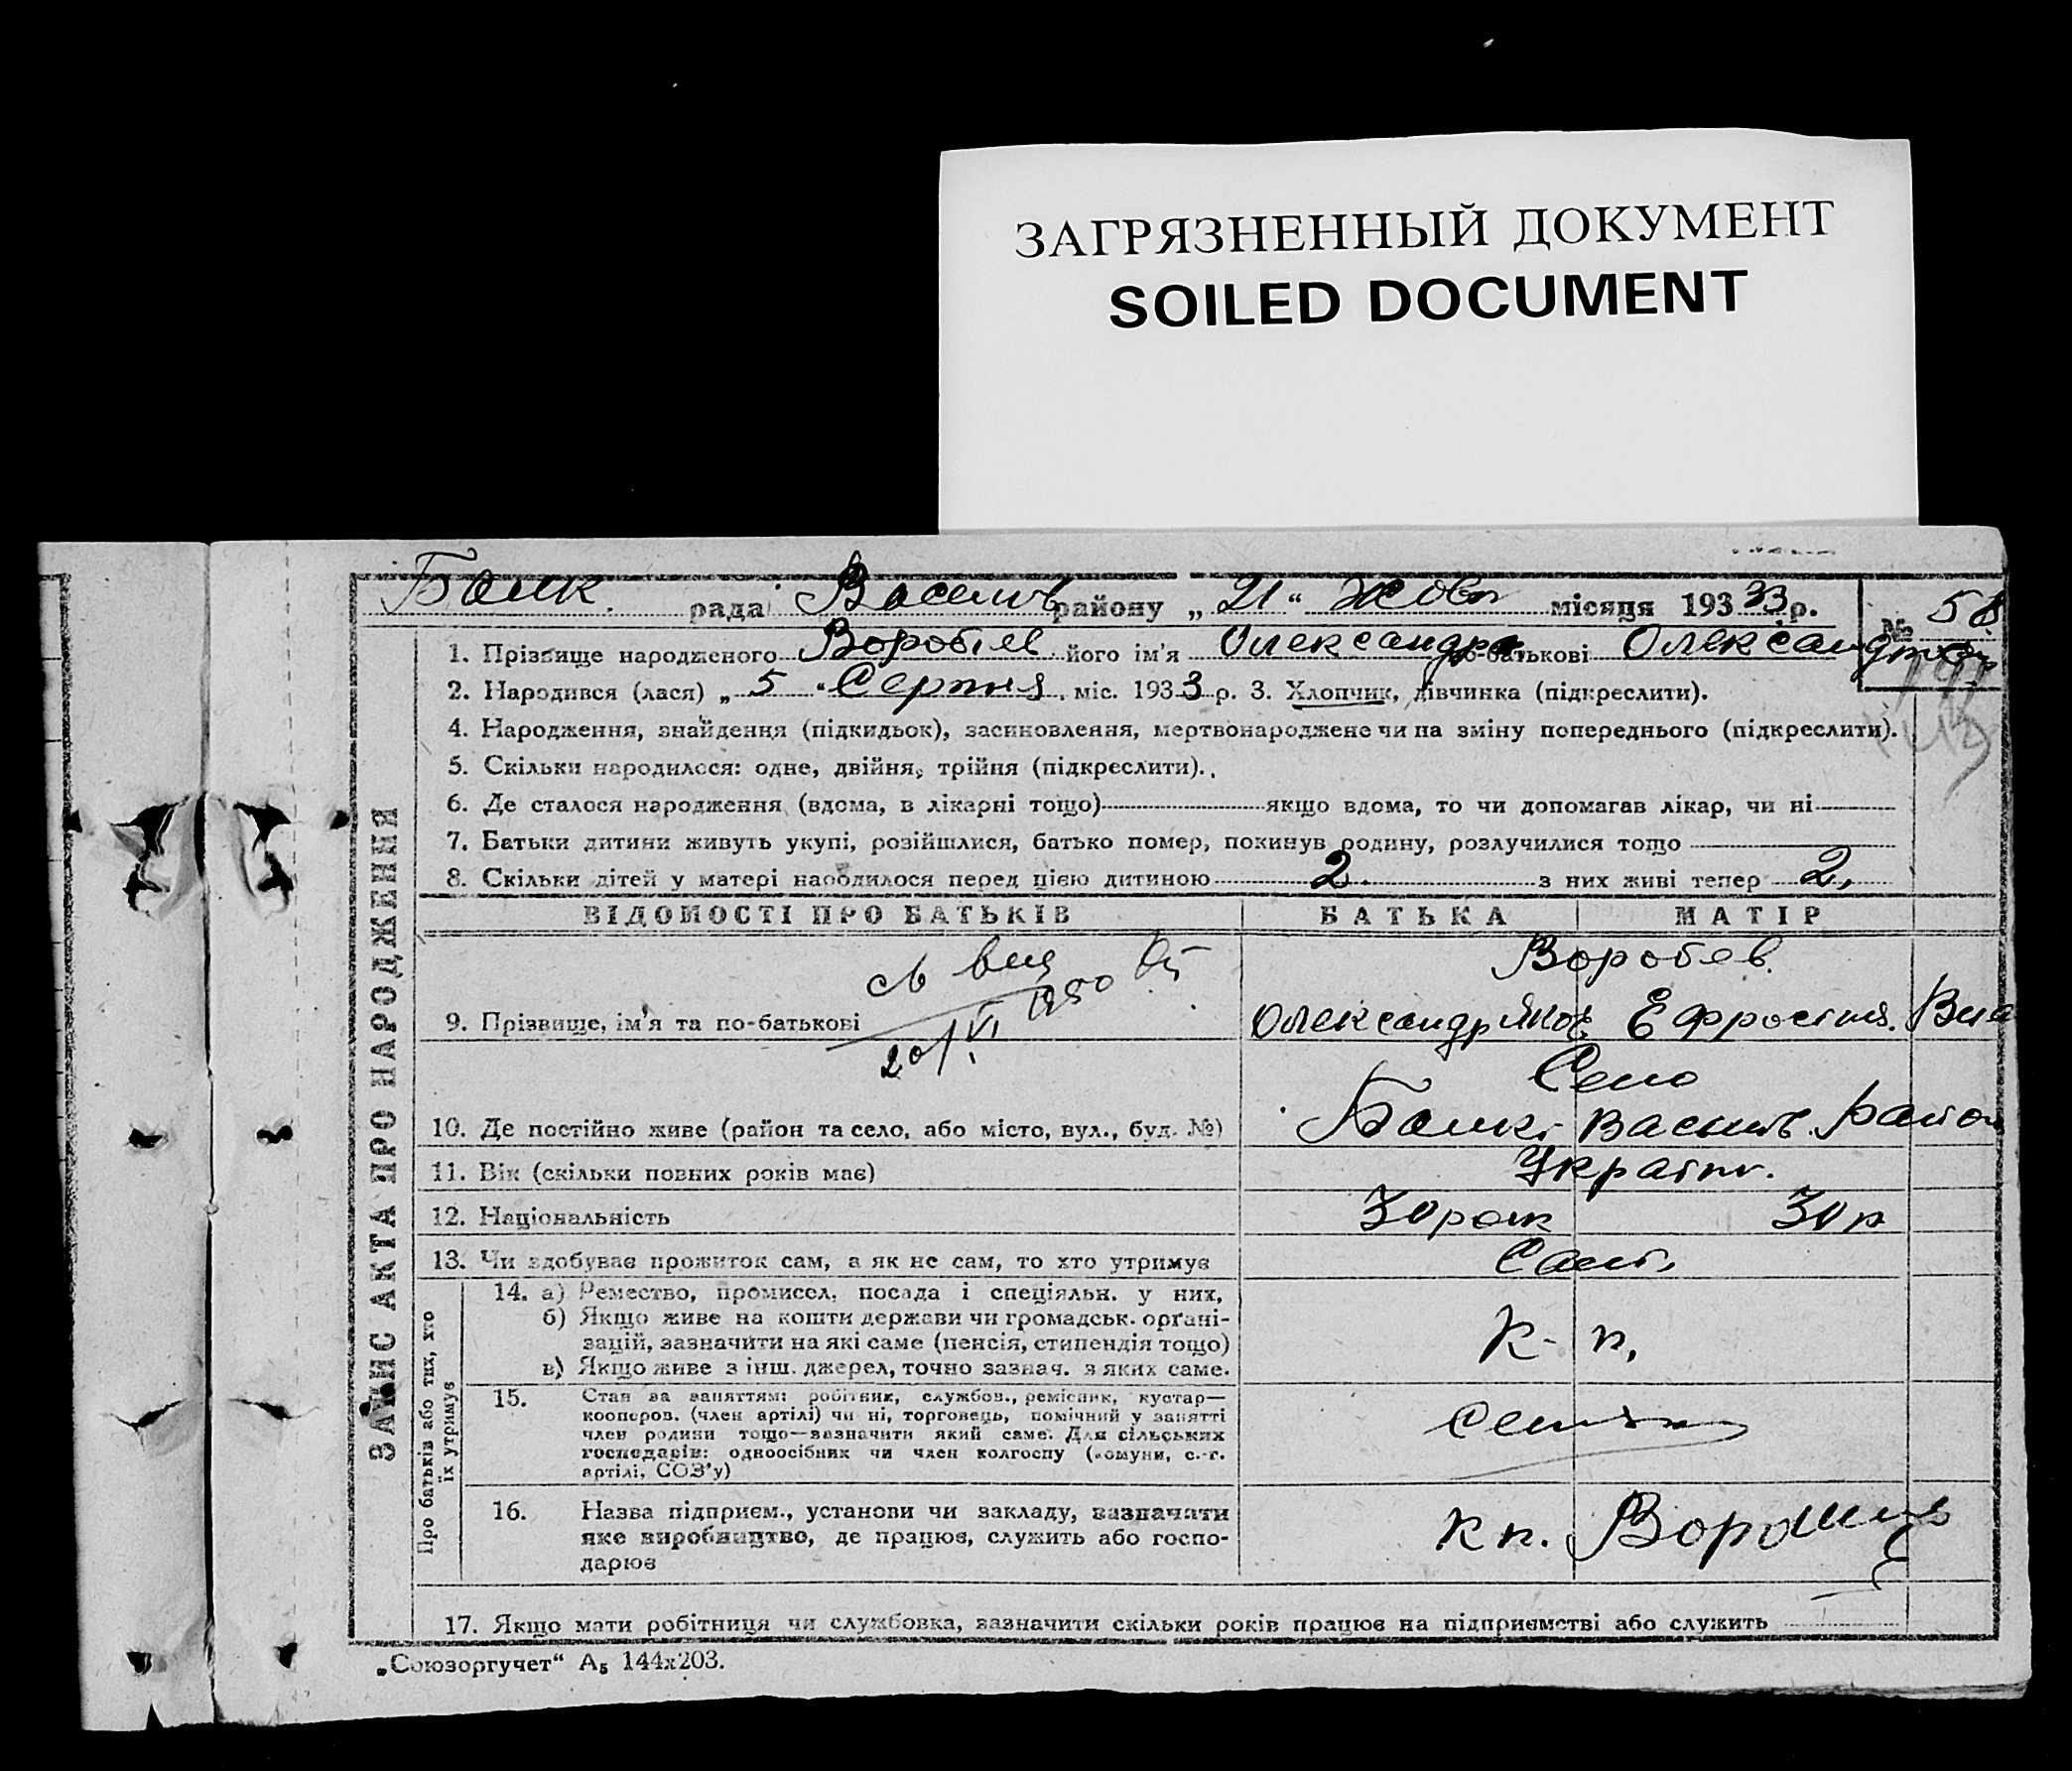 ЗАГРЯЗНЕННЫЙ ДОКУМЕНТ
SOILED DOCUMENT
Балк. рада Василів району „21“ Жовт місяця 193 33 р. № 58
1. Прізвище народженого Воробіев його ім'я Олександр по-батькові Олександров
2. Народився (лася) „ 5 “ Серпня міс. 193 3 р. 3. Хлопчик, дівчинка (підкреслити).
4. Народження, знайдення (підкидьок), засиновлення, мертвонароджене чи на зміну попереднього (підкреслити).
5. Скільки народилося: одне, двійня, трійня (підкреслити).
6. Де сталося народження (вдома, в лікарні тощо) якщо вдома, то чи допомагав лікар, чи ні
7. Батьки дитини живуть укупі, розійшлися, батько помер, покинув родину, розлучилися тощо
8. Скільки дітей у матері народилося перед цією дитиною 2. з них живі тепер 2,
ЗАПИС АКТА ПРО НАРОДЖЕННЯ
ВІДОМОСТІ ПРО БАТЬКІВ БАТЬКА МАТІР
Воробев.
9. Прізвище, ім'я та по-батькові Олександр Яков Ефросиня.
20/VI 1950
Село
10. Де постійно живе (район та село, або місто, вул., буд. №) Балк. Василів. район
11. Вік (скільки повних років має) Україн.
12. Національність 30 рок 30 р
13. Чи здобуває прожиток сам, а як не сам, то хто утримує Самі,
Про батьків або тих, хто
їх утримує
14. а) Ремество, промисел, посада і спеціяльн. у них,
б) Якщо живе на кошти держави чи громадськ. орґані-
зацій, зазначити на які саме (пенсія, стипендія тощо) К- п,
в) Якщо живе з інш. джерел, точно зазнач. з яких саме.
15. Стан за заняттям: робітник, службов., ремісник, кустар—
кооперов. (член артілі) чи ні, торговець, помічний у занятті
член родини тощо—зазначити який саме. Для сільських
господарів: одноосібник чи член колгоспу (комуни, с.-г.
артілі, СОЗ'у)
16. Назва підприєм., установи чи закладу, зазначати
яке виробництво, де працює, служить або госпо-
дарює кп. Ворошил
17. Якщо мати робітниця чи службовка, зазначити скільки років працює на підприємстві або служить
„Союзоргучет“ А₅ 144х203.